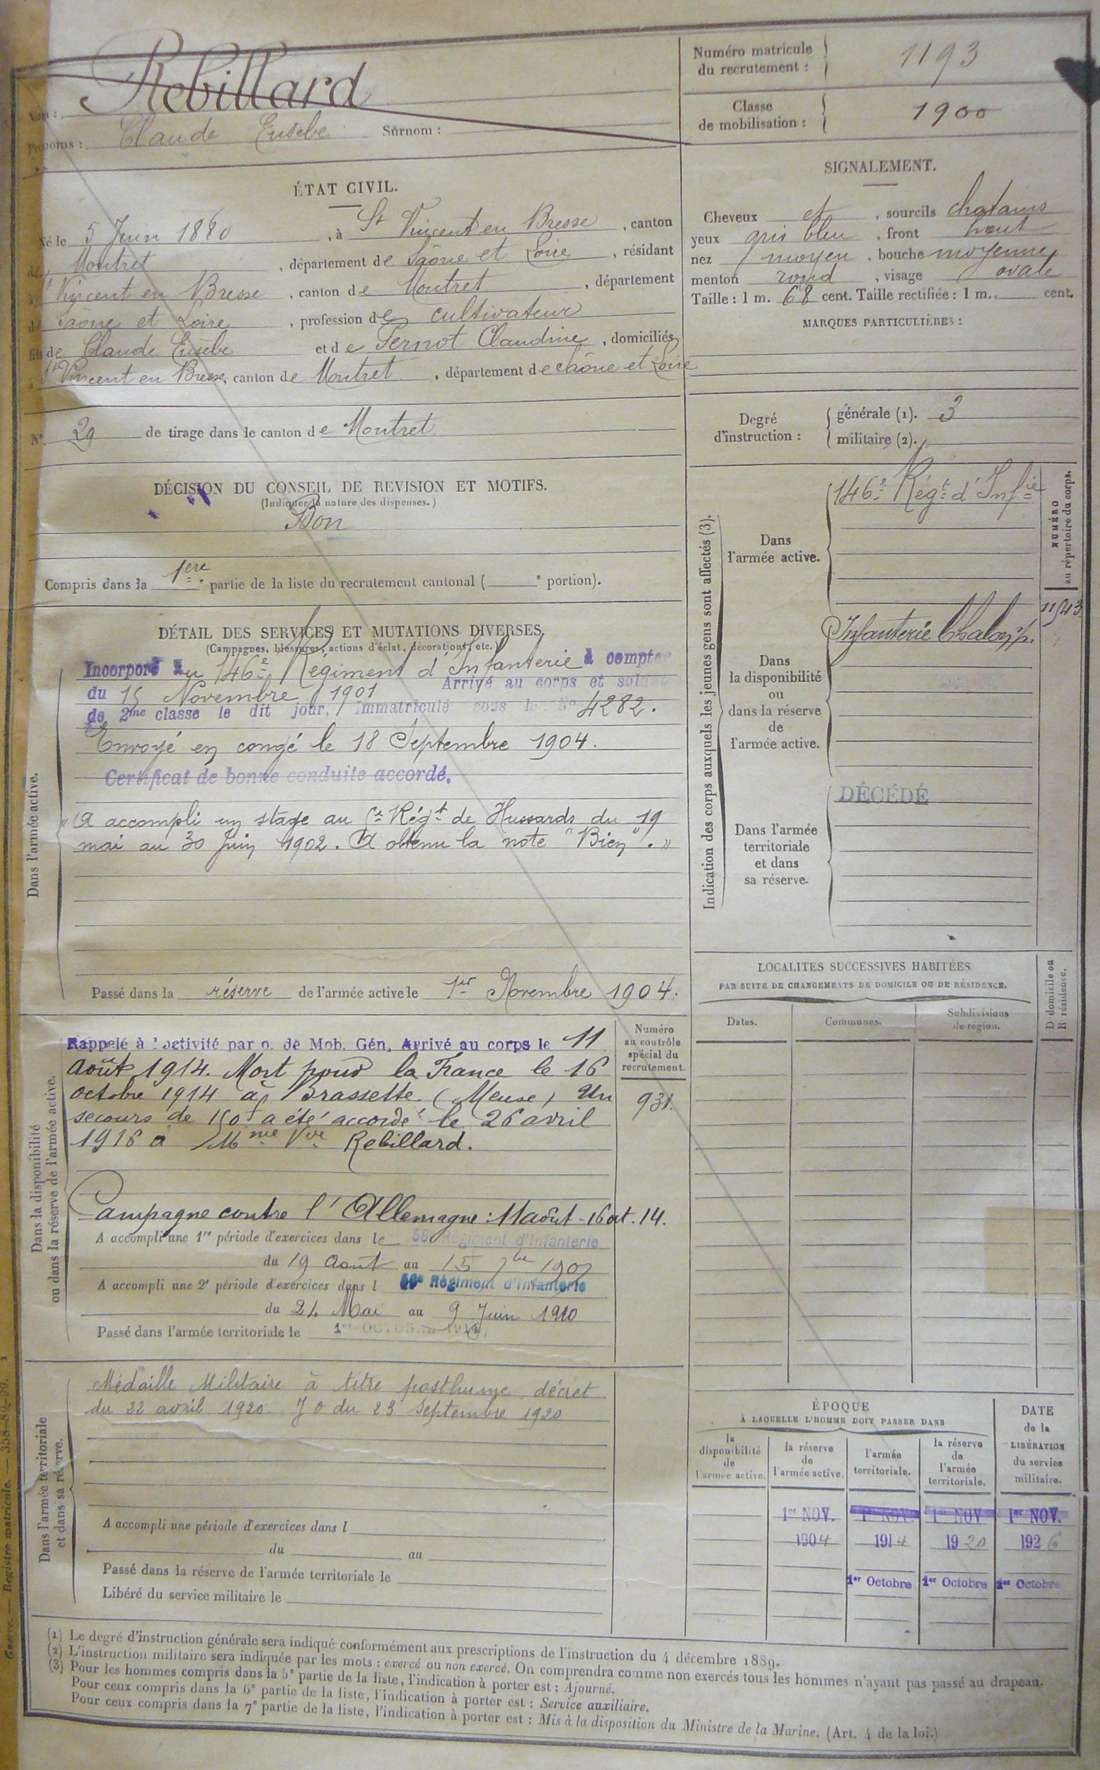 Nom : Rebillard
Prénoms : Claude Eusèbe Surnom :
Numéro matricule du recrutement : 1193
Classe de mobilisation : 1900
ÉTAT CIVIL.
Né le 5 Juin 1880, à St Vincent en Bresse, canton
de Montret, département de Saône et Loire, résidant
à St Vincent en Bresse, canton de Montret, département
de Saône et Loire, profession de cultivateur
fils de Claude Eusèbe et de Pernot Claudine, domiciliés
à St Vincent en Bresse, canton de Montret, département de Saône et Loire
N° 29 de tirage dans le canton de Montret
SIGNALEMENT.
Cheveux et, sourcils chatains
yeux gris bleu, front haut
nez moyen, bouche moyenne
menton rond, visage ovale
Taille : 1 m. 68 cent. Taille rectifiée : 1 m. cent.
MARQUES PARTICULIÈRES :
Degré d'instruction : générale (1). 3
militaire (2).
DÉCISION DU CONSEIL DE REVISION ET MOTIFS.
(Indiquer la nature des dispenses.)
Bon
Compris dans la 1ère partie de la liste du recrutement cantonal ( e portion).
DÉTAIL DES SERVICES ET MUTATIONS DIVERSES.
(Campagnes, blessures, actions d'éclat, décorations, etc.)
Dans l'armée active.
Incorporé au 146e Régiment d'Infanterie à compter
du 15 Novembre 1901 Arrivé au corps et soldat
de 2me classe le dit jour. Immatriculé sous le No 4282.
Envoyé en congé le 18 Septembre 1904.
Certificat de bonne conduite accordé.
"A accompli un stage au Régt de Hussards du 19
mai au 30 Juin 1902. A obtenu la note "Bien"."
Passé dans la réserve de l'armée active le 1er Novembre 1904.
Indication des corps auxquels les jeunes gens sont affectés (3).
NUMÉRO au répertoire du corps.
Dans l'armée active. 146e Régt d'Infie
Dans la disponibilité ou dans la réserve de l'armée active. Infanterie
Dans l'armée territoriale et dans sa réserve. DÉCÉDÉ
LOCALITÉS SUCCESSIVES HABITÉES
PAR SUITE DE CHANGEMENTS DE DOMICILE OU DE RÉSIDENCE.
Dates. Communes. Subdivisions de région. D domicile ou R résidence.
Dans la disponibilité ou dans la réserve de l'armée active.
Numéro au contrôle spécial du recrutement.
931.
Rappelé à l'activité par o. de Mob. Gén. Arrivé au corps le 11
août 1914. Mort pour la France le 16
octobre 1914 à Brassette (Meuse) Un
secours de 150f a été accordé le 26 avril
1916 à Mme Vve Rebillard.
Campagne contre l'Allemagne : 11 août - 16 oct. 14.
A accompli une 1re période d'exercices dans le 56e Régiment d'Infanterie
du 19 Aout au 15 7bre 1907
A accompli une 2e période d'exercices dans l 56e Régiment d'Infanterie
du 24 Mai au 9 Juin 1910
Passé dans l'armée territoriale le 1er OCTOBRE
Dans l'armée territoriale et dans sa réserve.
Médaille Militaire à titre posthume décret
du 22 avril 1920. JO du 23 Septembre 1920
A accompli une période d'exercices dans l
du au
Passé dans la réserve de l'armée territoriale le
Libéré du service militaire le
ÉPOQUE
À LAQUELLE L'HOMME DOIT PASSER DANS
la disponibilité de l'armée active. la réserve de l'armée active. l'armée territoriale. la réserve de l'armée territoriale.
DATE de la LIBÉRATION du service militaire.
1er NOV. 1er NOV. 1er NOV. 1er NOV.
1904 1914 1920 1926
1er Octobre 1er Octobre 1er Octobre
(1) Le degré d'instruction générale sera indiqué conformément aux prescriptions de l'instruction du 4 décembre 1889.
(2) L'instruction militaire sera indiquée par les mots : exercé ou non exercé. On comprendra comme non exercés tous les hommes n'ayant pas passé au drapeau.
(3) Pour les hommes compris dans la 5e partie de la liste, l'indication à porter est : Ajourné.
Pour ceux compris dans la 6e partie de la liste, l'indication à porter est : Service auxiliaire.
Pour ceux compris dans la 7e partie de la liste, l'indication à porter est : Mis à la disposition du Ministre de la Marine. (Art. 4 de la loi.)